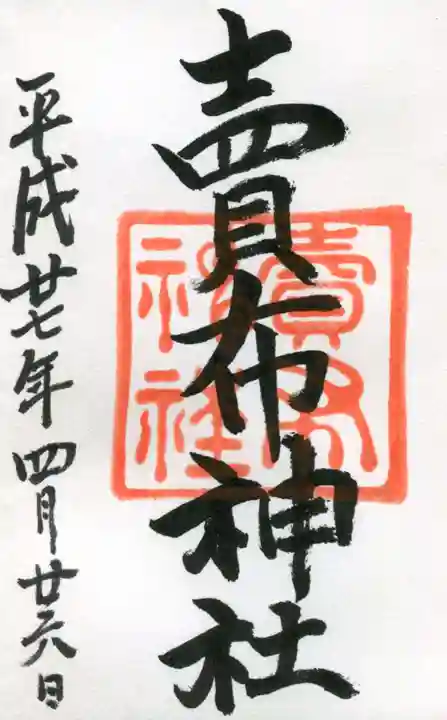 賣布神社
平成廿七年四月廿六日
賣布
神社